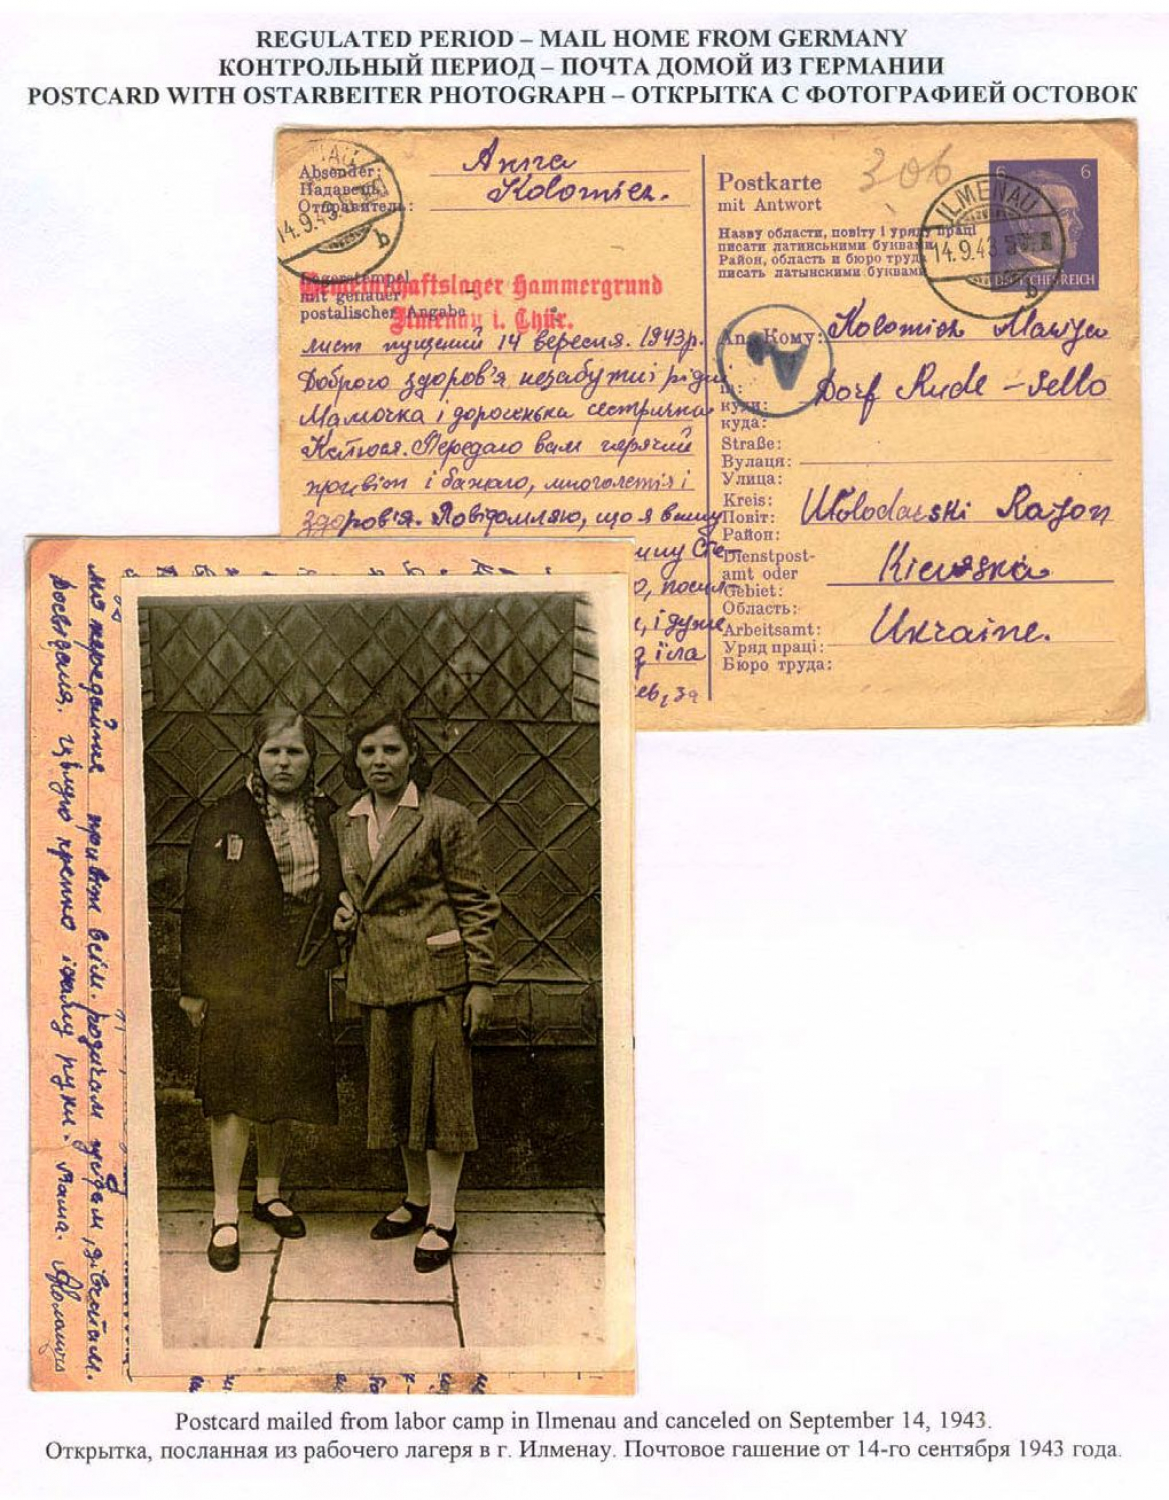 REGULATED PERIOD – MAIL HOME FROM GERMANY
КОНТРОЛЬНЫЙ ПЕРИОД – ПОЧТА ДОМОЙ ИЗ ГЕРМАНИИ
POSTCARD WITH OSTARBEITER PHOTOGRAPH – ОТКРЫТКА С ФОТОГРАФИЕЙ ОСТОВОК
Absender:
Надавець:
Отправитель:
Anna
Kolomiez.
14.9.43
b
Lagerstempel
mit genauer
postalischer Angabe
Gemeinschaftslager Hammergrund
Ilmenau i. Thür.
лист пущений 14 вересня. 1943р.
Доброго здоров'я незабутні рідні
Мамочка і дорогенька сестричка
Катюся. Передаю вам гарячий
привіт і бажаю, многолетія і
здоров'я. Повідомляю, що я вашу
, і дуже
їла
Postkarte
mit Antwort
306
6 6
DEUTSCHES REICH
ILMENAU
14.9.43
b
Назву области, повіту і уряду праці
писати латинськими буквами
Район, область и бюро труда
писать латынскими буквами
A
An Кому: Kolomiez Marija
in:
куди:
куда:
Dorf Rude - Sello
Straße:
Вулаця:
Улица:
Kreis:
Повіт:
Район:
Wolodarski Rajon
Dienstpost-
amt oder
Gebiet:
Область:
Kiewska
Arbeitsamt:
Уряд праці:
Бюро труда:
Ukraine.
передайте привіт всім. родичам
досвіданя. цьлую крепко і жму руки. Мама.
Postcard mailed from labor camp in Ilmenau and canceled on September 14, 1943.
Открытка, посланная из рабочего лагеря в г. Илменау. Почтовое гашение от 14-го сентября 1943 года.